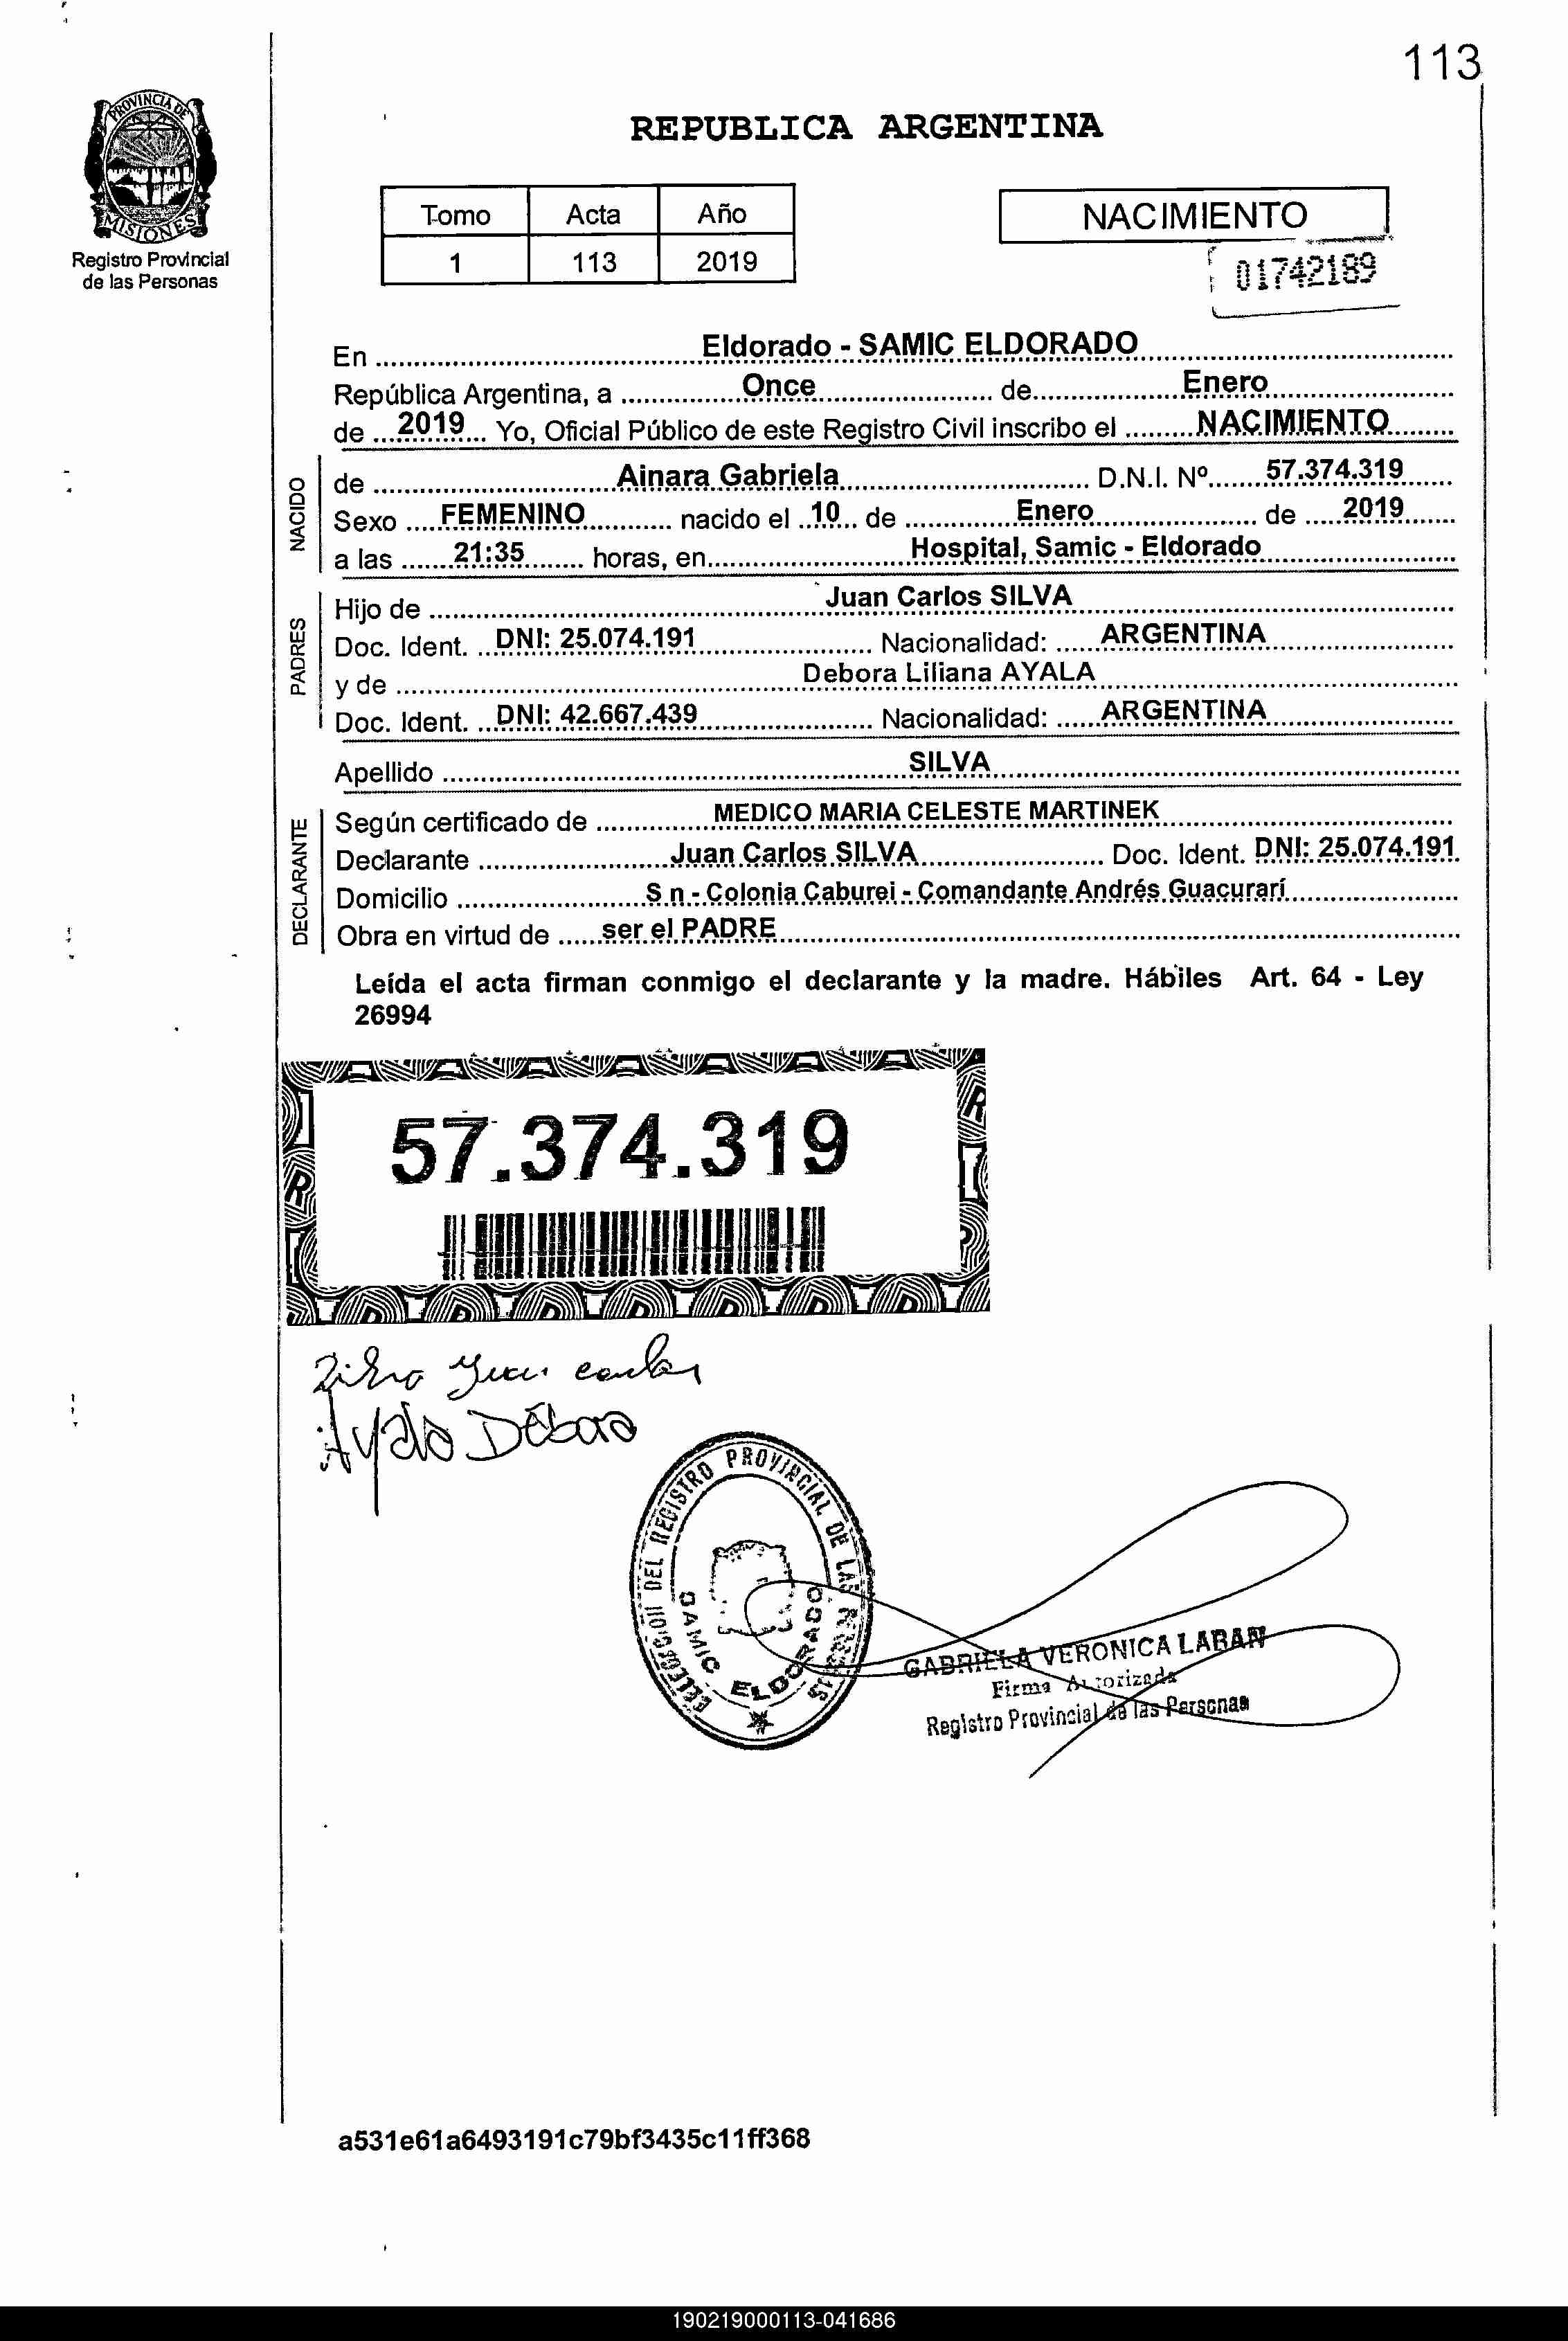 113
PROVINCIA DE
MISIONES
Registro Provincial
de las Personas
REPUBLICA ARGENTINA
Tomo Acta Año
1 113 2019
NACIMIENTO
01742189
En Eldorado - SAMIC ELDORADO
República Argentina, a Once de Enero
de 2019 Yo, Oficial Público de este Registro Civil inscribo el NACIMIENTO
NACIDO
de Ainara Gabriela D.N.I. Nº 57.374.319
Sexo FEMENINO nacido el 10 de Enero de 2019
a las 21:35 horas, en Hospital, Samic - Eldorado
PADRES
Hijo de Juan Carlos SILVA
Doc. Ident. DNI: 25.074.191 Nacionalidad: ARGENTINA
y de Debora Liliana AYALA
Doc. Ident. DNI: 42.667.439 Nacionalidad: ARGENTINA
Apellido SILVA
DECLARANTE
Según certificado de MEDICO MARIA CELESTE MARTINEK
Declarante Juan Carlos SILVA Doc. Ident. DNI: 25.074.191
Domicilio S n - Colonia Caburei - Comandante Andrés Guacurarí
Obra en virtud de ser el PADRE
Leída el acta firman conmigo el declarante y la madre. Hábiles Art. 64 - Ley
26994
57.374.319
Ayala Débora
DEL REGISTRO PROVINCIAL DE LAS
SAMIC ELDORADO
GABRIELA VERONICA LABAN
Firma Autorizada
Registro Provincial de las Personas
a531e61a6493191c79bf3435c11ff368
190219000113-041686